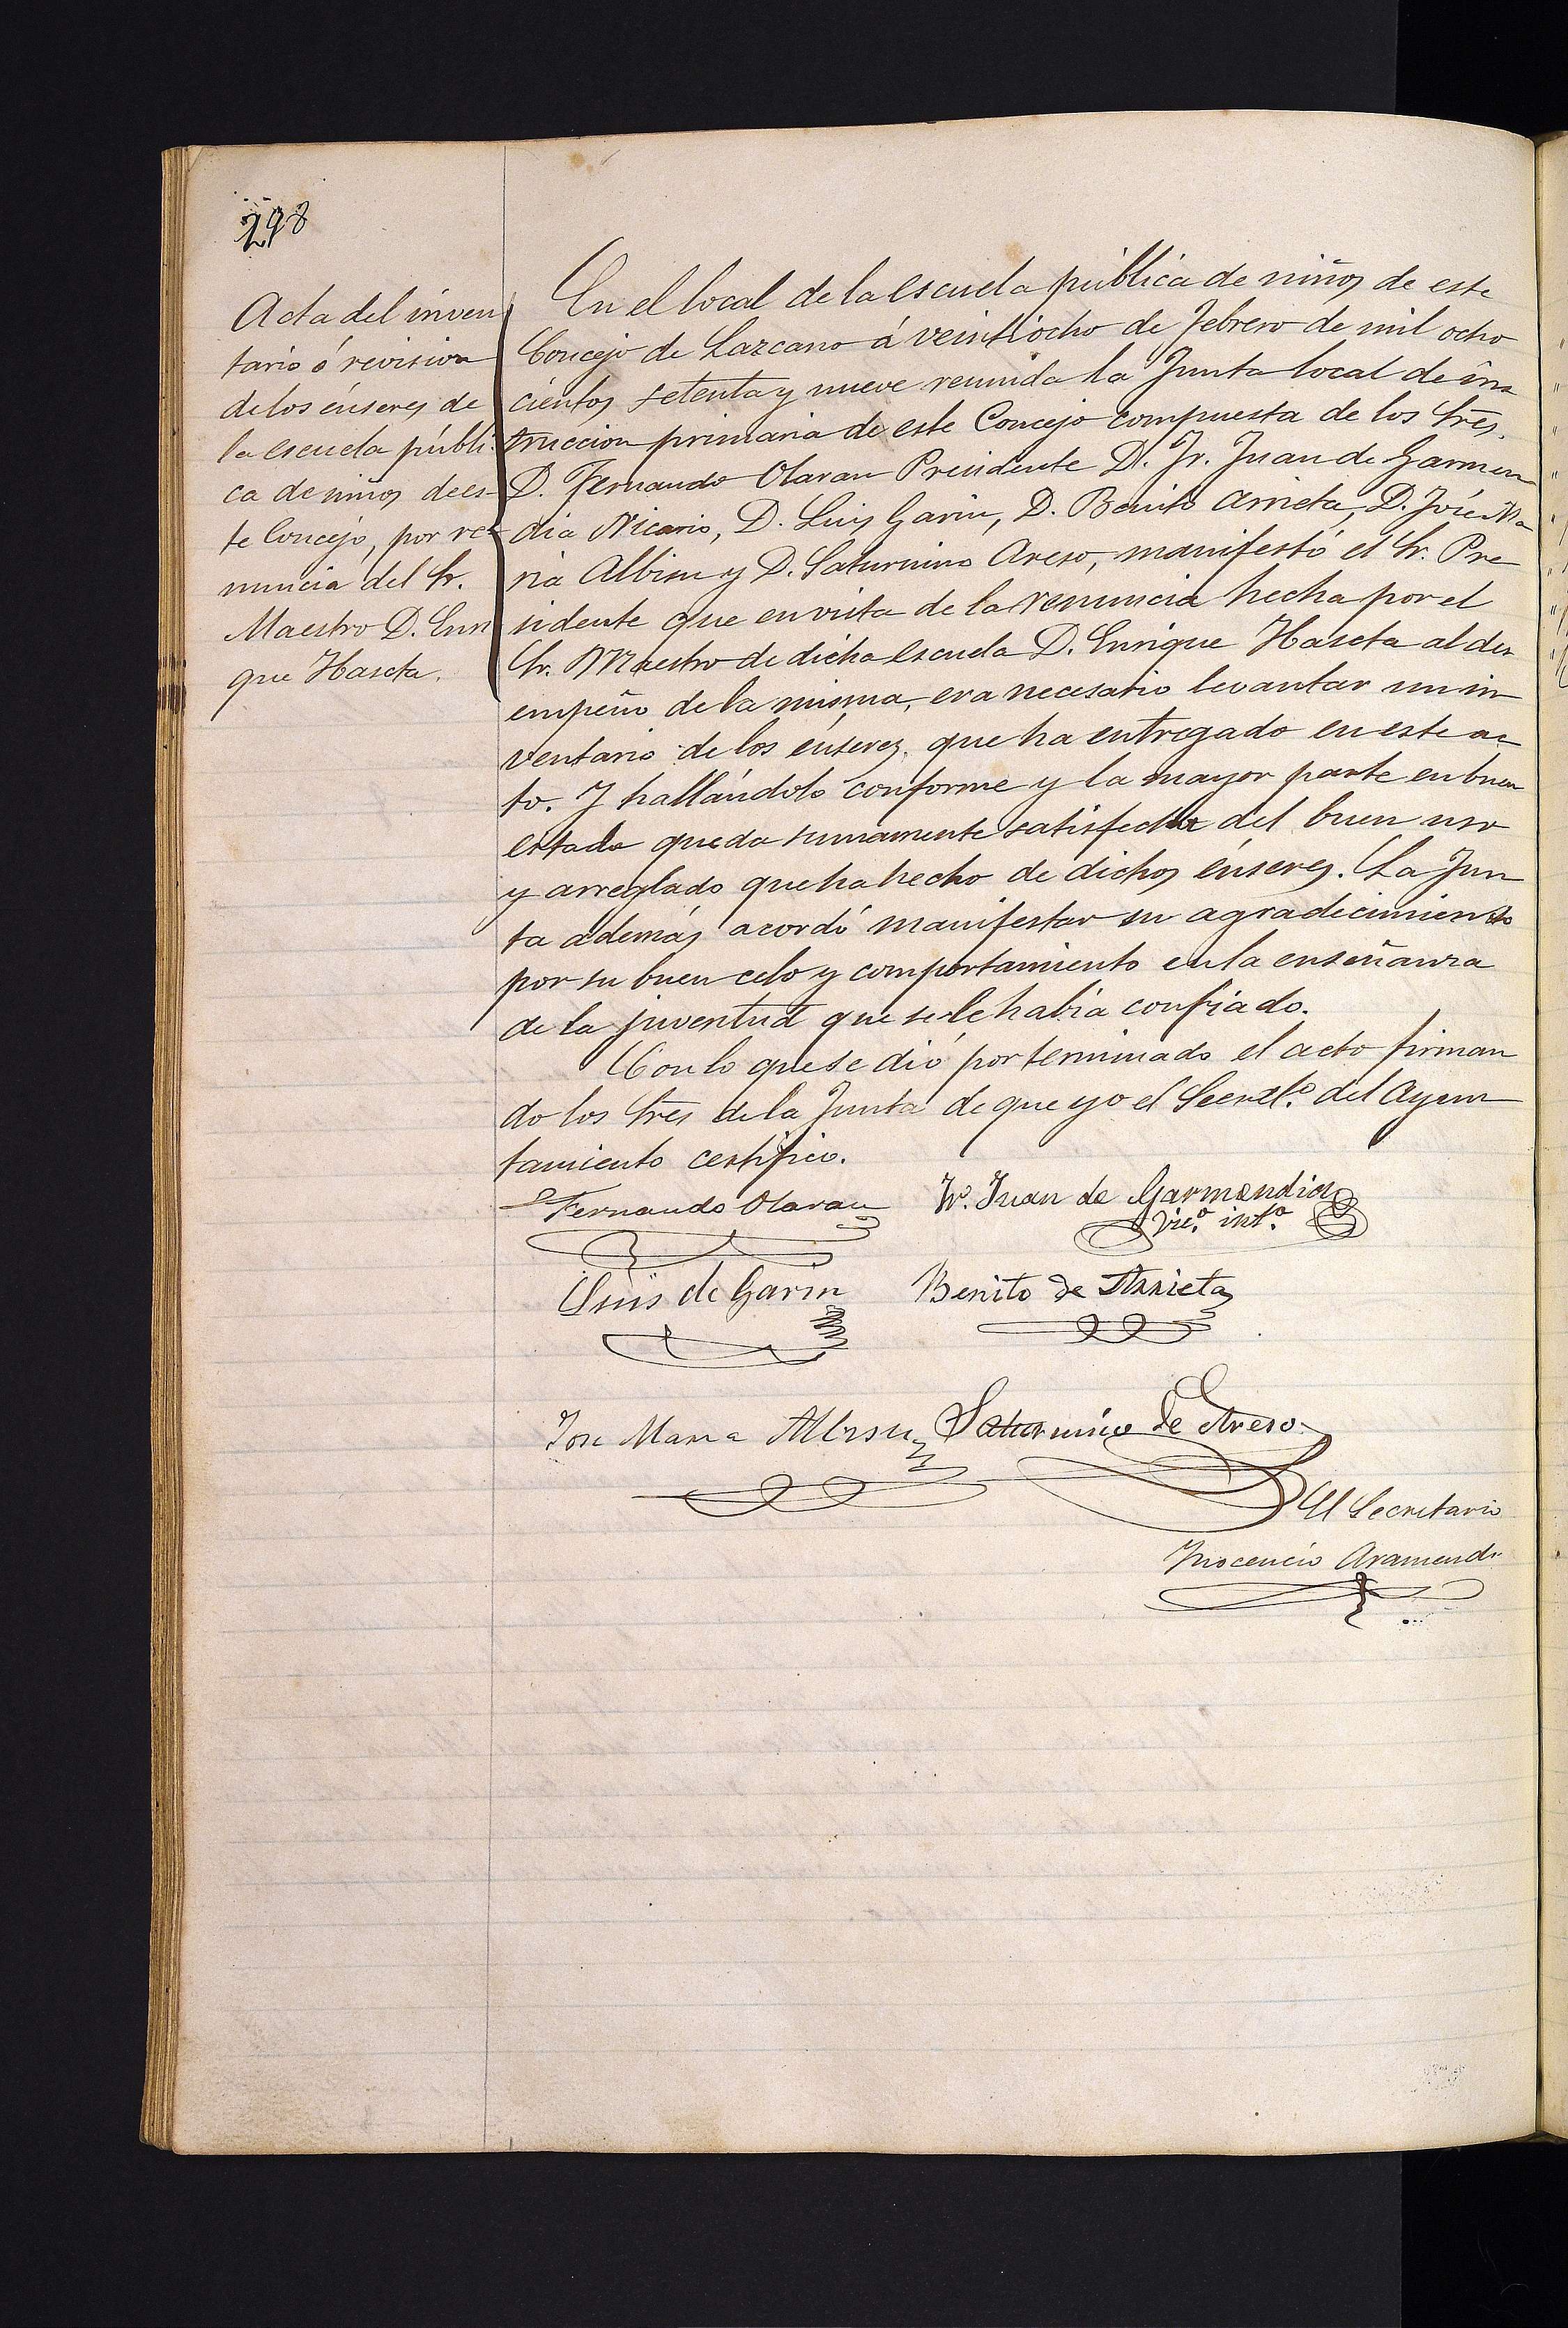 298
Acta del inven
tario ó revision
de los énseres de
la escuela públi-
ca de niños de es-
te Concejo, por re-
nuncia del Sr.
Maestro D. Enri
que Haseta.
En el local de la escuela pública de niños de este
Concejo de Lazcano á veintiocho de Febrero de mil ocho
cientos setenta y nueve reunida la Junta local de ins
truccion primaria de este Concejo compuesta de los Sres.
D. Fernando Olaran Presidente D. Fr. Juan de Garmen
dia Vicario, D. Luis Garin, D. Benito Arrieta, D. José Ma
ria Albisu y D. Saturnino Areso, manifestó el Sr. Pre
sidente que en vista de la renuncia hecha por el
Sr. Maestro de dicha escuela D. Enrique Haseta al des
empeño de la misma, era necesario levantar un in
ventario de los énseres, que ha entregado en este ac
to. Y hallándolo conforme y la mayor parte en buen
estado queda sumamente satisfecha del buen uso
y arreglado que ha hecho de dichos énseres. La Jun
ta además acordó manifestar su agradecimiento
por su buen celo y comportamiento en la enseñanza
de la juventud que se le habia confiado.
Con lo que se dió por terminado el acto firman
do los Sres de la Junta de que yo el Secret.º del Ayun
tamiento certifico.
Fernando Olaran Fr. Juan de Garmendia
Vic.º int.º
Luis de Garin Benito de Arrieta
Jose Maria Albisu Saturnino de Areso
El Secretario
Inocencio Aramendi